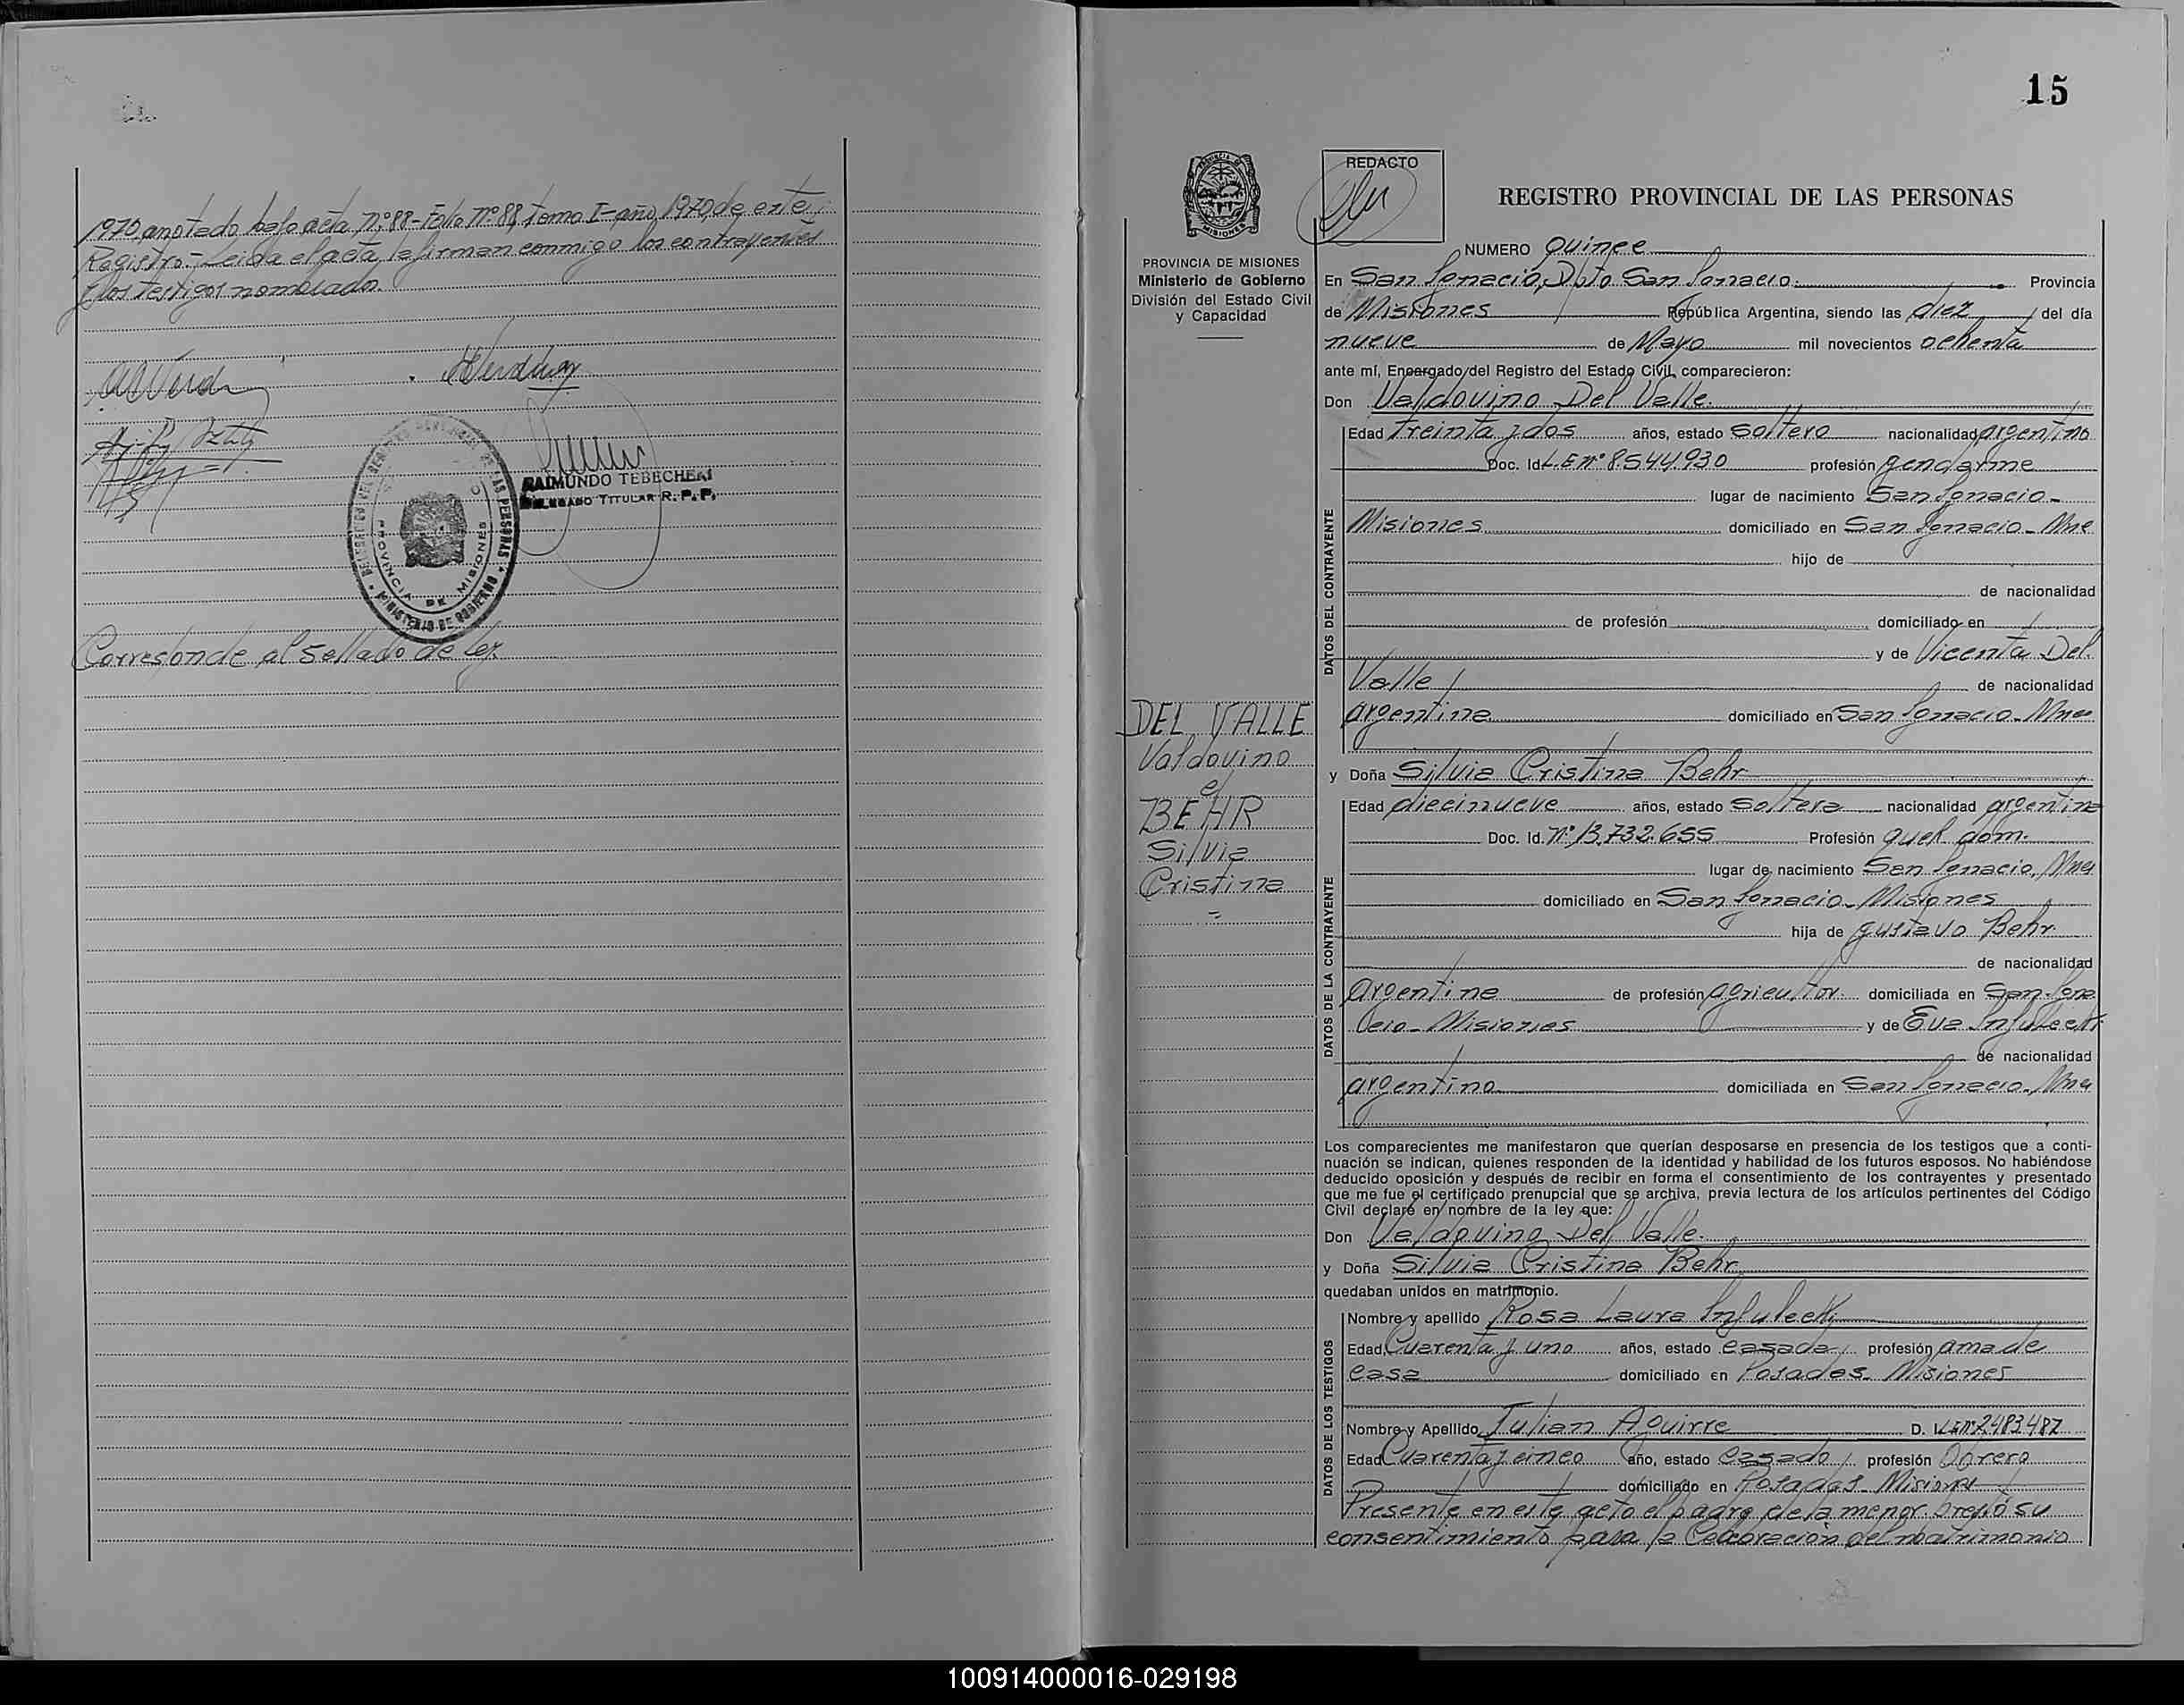 1970, anotado bajo acta Nº 88 - Folio Nº 88, tomo I - año 1970 de este
Registro.- Leida el acta, la firman conmigo los contrayentes
y los testigos nombrado.
RAIMUNDO TEBECHERI
DELEGADO TITULAR R. P. P.
PROVINCIA DE MISIONES
MINISTERIO DE GOBIERNO
Corresponde al Sellado de Ley.
15
PROVINCIA DE MISIONES
Ministerio de Gobierno
División del Estado Civil
y Capacidad
DEL VALLE
Valdovino
c/
BEHR
Silvia
Cristina
REDACTO
REGISTRO PROVINCIAL DE LAS PERSONAS
NUMERO Quince
En San Ignacio, Dpto San Ignacio. Provincia
de Misiones República Argentina, siendo las diez del día
nueve de Mayo mil novecientos ochenta
ante mí, Encargado del Registro del Estado Civil, comparecieron:
Don Valdovino Del Valle.
DATOS DEL CONTRAYENTE
Edad treinta y dos años, estado soltero nacionalidad argentino
Doc. Id. L.E nº 8.544.930 profesión gendarme
lugar de nacimiento San Ignacio -
Misiones domiciliado en San Ignacio - Mnes
hijo de
de nacionalidad
de profesión domiciliado en
y de Vicenta Del
Valle de nacionalidad
argentina domiciliado en San Ignacio - Mnes
y Doña Silvia Cristina Behr
DATOS DE LA CONTRAYENTE
Edad diecinueve años, estado soltera nacionalidad argentina
Doc. Id. Nº 13.732.655 Profesión queh. dom.
lugar de nacimiento San Ignacio, Mnes
domiciliado en San Ignacio - Misiones
hija de Gustavo Behr
de nacionalidad
argentina de profesión agricultor domiciliada en San Igna
cio - Misiones y de Eva
de nacionalidad
argentina domiciliada en San Ignacio - Mnes
Los comparecientes me manifestaron que querían desposarse en presencia de los testigos que a conti-
nuación se indican, quienes responden de la identidad y habilidad de los futuros esposos. No habiéndose
deducido oposición y después de recibir en forma el consentimiento de los contrayentes y presentado
que me fue el certificado prenupcial que se archiva, previa lectura de los artículos pertinentes del Código
Civil declaré en nombre de la ley que:
Don Valdovino Del Valle.
y Doña Silvia Cristina Behr
quedaban unidos en matrimonio.
DATOS DE LOS TESTIGOS
Nombre y apellido Rosa Laura
Edad Cuarenta y uno años, estado casada profesión ama de
casa domiciliado en Posadas - Misiones
Nombre y Apellido Julian Aguirre D. I. LE nº 7.483.487
Edad Cuarenta y cinco año, estado casado profesión Obrero
domiciliado en Posadas - Misiones
Presente en este acto el padre de la menor prestó su
consentimiento para la Celebración del matrimonio
100914000016-029198